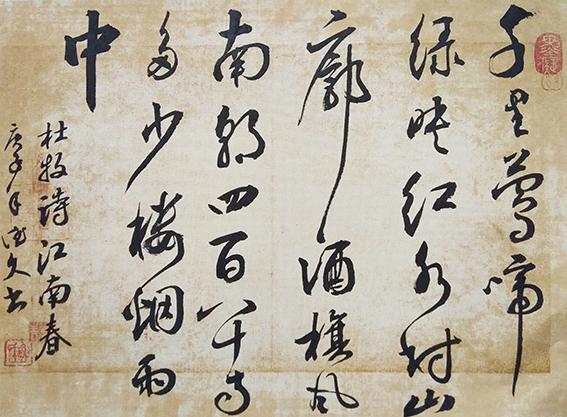 千里莺啼
绿映红水村山
廓酒旗风
南朝四百八十寺
多少楼烟雨
中
杜牧詩江南春
庚子年文书